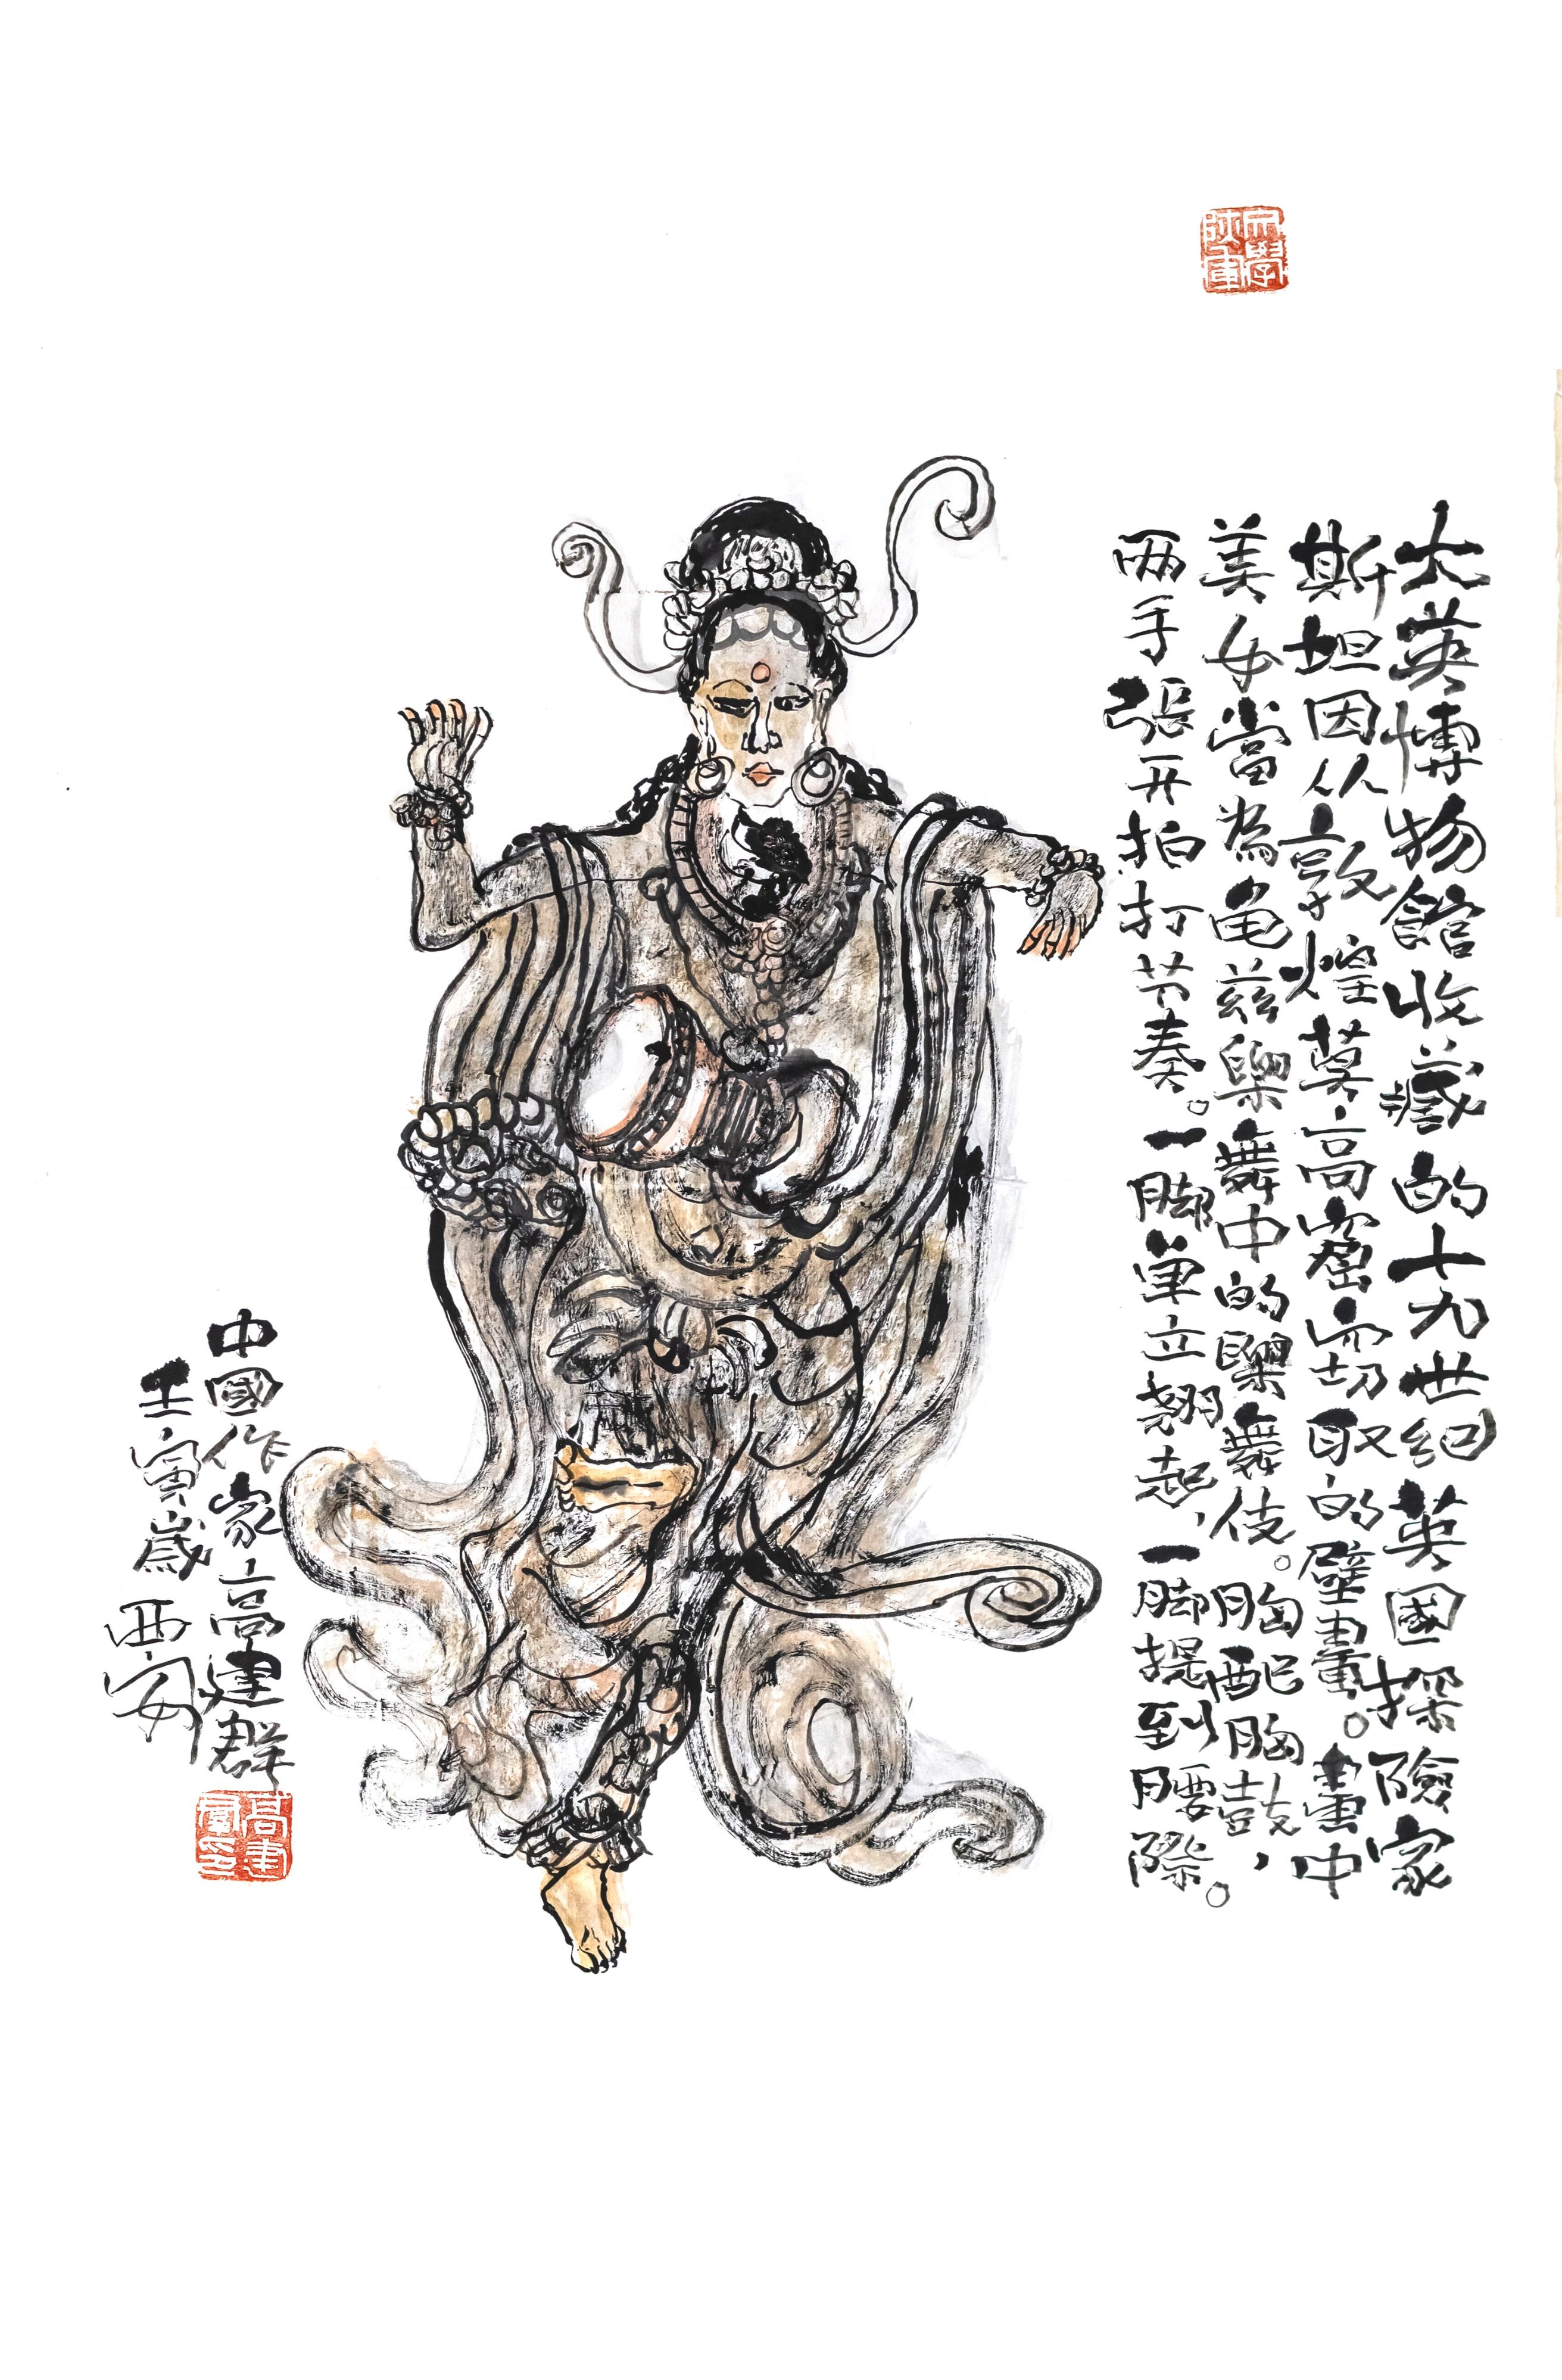 大英博物館收藏的十九世纪英國探險家
斯坦因从敦煌莫高窟窃取的壁畫。畫中
美女當為龟兹樂舞中的樂舞伎。胸配胸鼓，
两手張开拍打节奏。一脚单立翘起，一脚提到腰際。
中國作家高建群
壬寅歲西安
高建群印